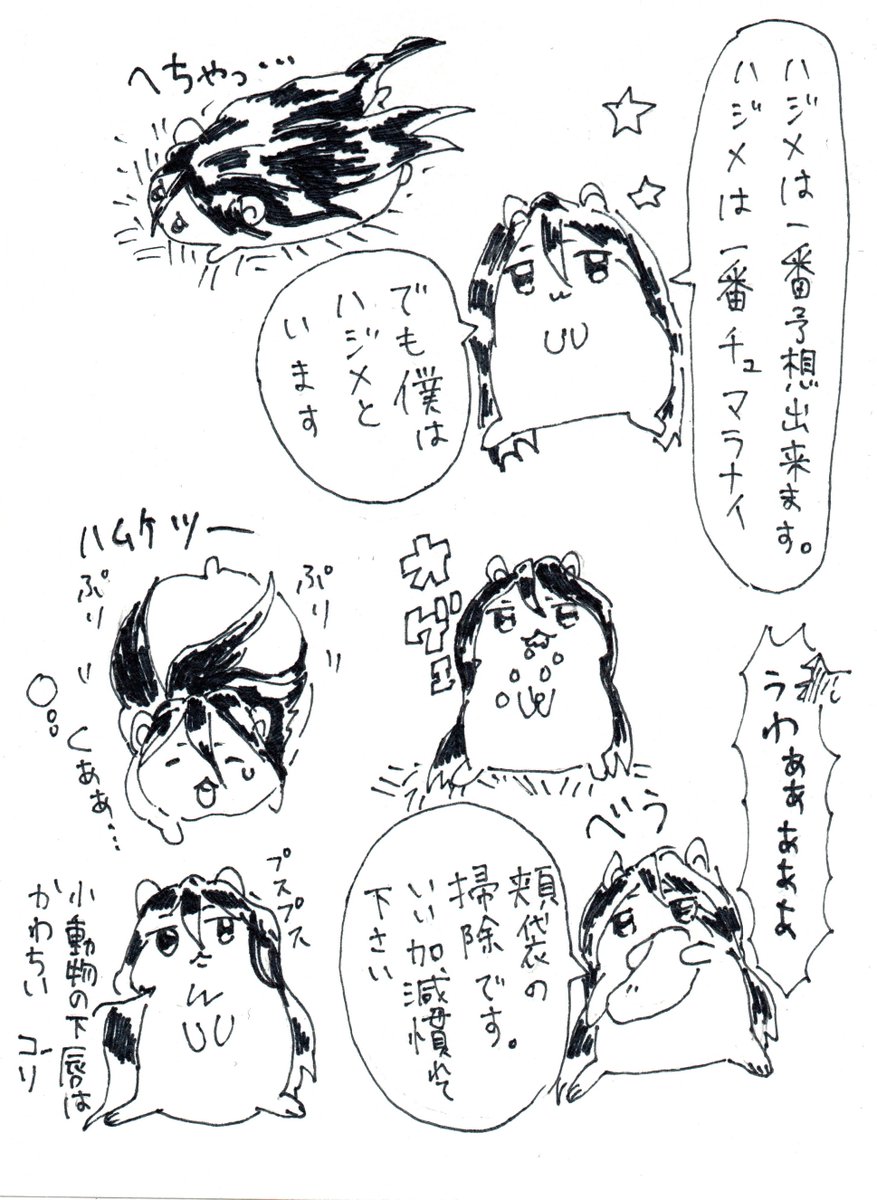 ハジメは一番予想出来ます。
ハジメは一番チュマラナイ
でも僕は
ハジメと
います
へちゃっ…
オゲュ
ハムケツー
ぷり
ぷり
くぁぁ…
うわぁぁぁぁぁ
べぅ
頬袋の
掃除です。
いい加減慣れて
下さい
プスプス
小動物の下唇は
かわちい
ゴリ